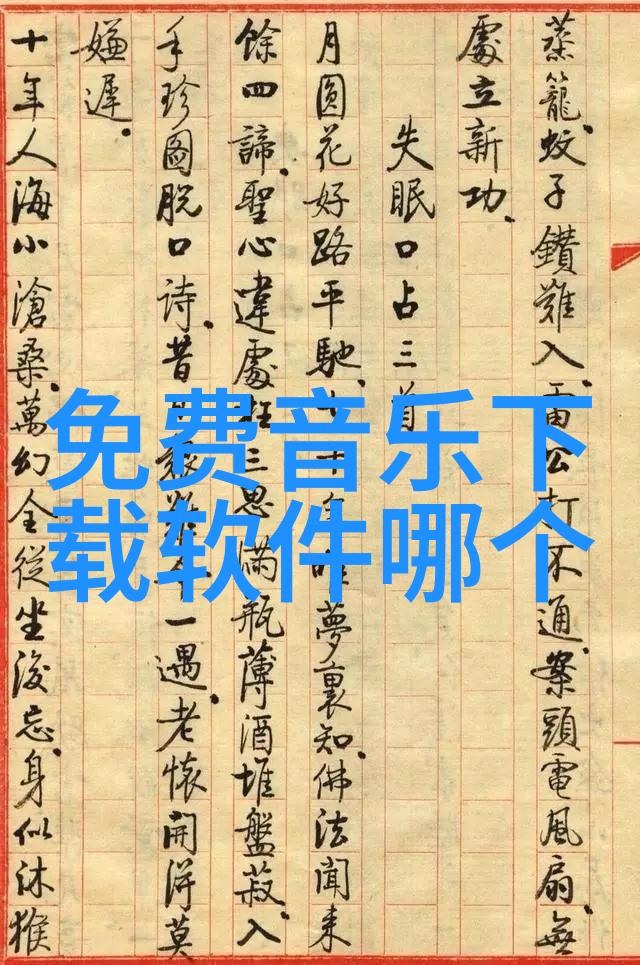 蒸籠、蚊子鑽難入、雷公打不通、案頭電風扇、無
處立新功、
失眠口占三首
月圓花好路平馳、夢裏知、佛法聞来
餘四諦、聖心違處枉三思、滿瓶薄酒堆盤菽、入
手珍圖脫口詩、昔難一遇、老懷開得莫
嫌遲、
十年人海小滄桑、萬幻全從坐後忘、身似沐猴
免费音乐下
载软件哪个